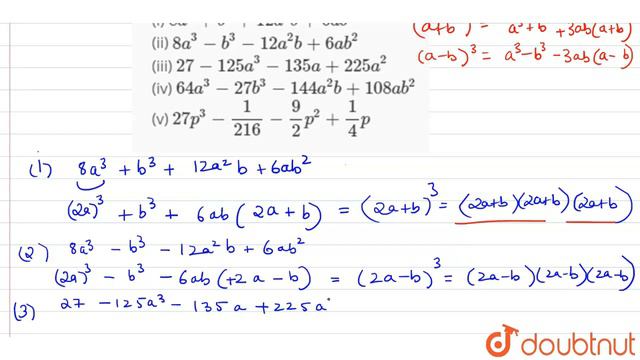 (ii) 8a³ − b³ − 12a²b + 6ab²
(iii) 27 − 125a³ − 135a + 225a²
(iv) 64a³ − 27b³ − 144a²b + 108ab²
(v) 27p³ − 1/216 − 9/2 p² + 1/4 p
(a+b)³ = a³+b³ +3ab(a+b)
(a−b)³ = a³−b³ −3ab(a−b)
(1) 8a³ + b³ + 12a²b + 6ab²
(2a)³ + b³ + 6ab(2a+b) = (2a+b)³ = (2a+b)(2a+b)(2a+b)
(2) 8a³ − b³ − 12a²b + 6ab²
(2a)³ − b³ − 6ab(+2a−b) = (2a−b)³ = (2a−b)(2a−b)(2a−b)
(3) 27 − 125a³ − 135a + 225a
doubtnut